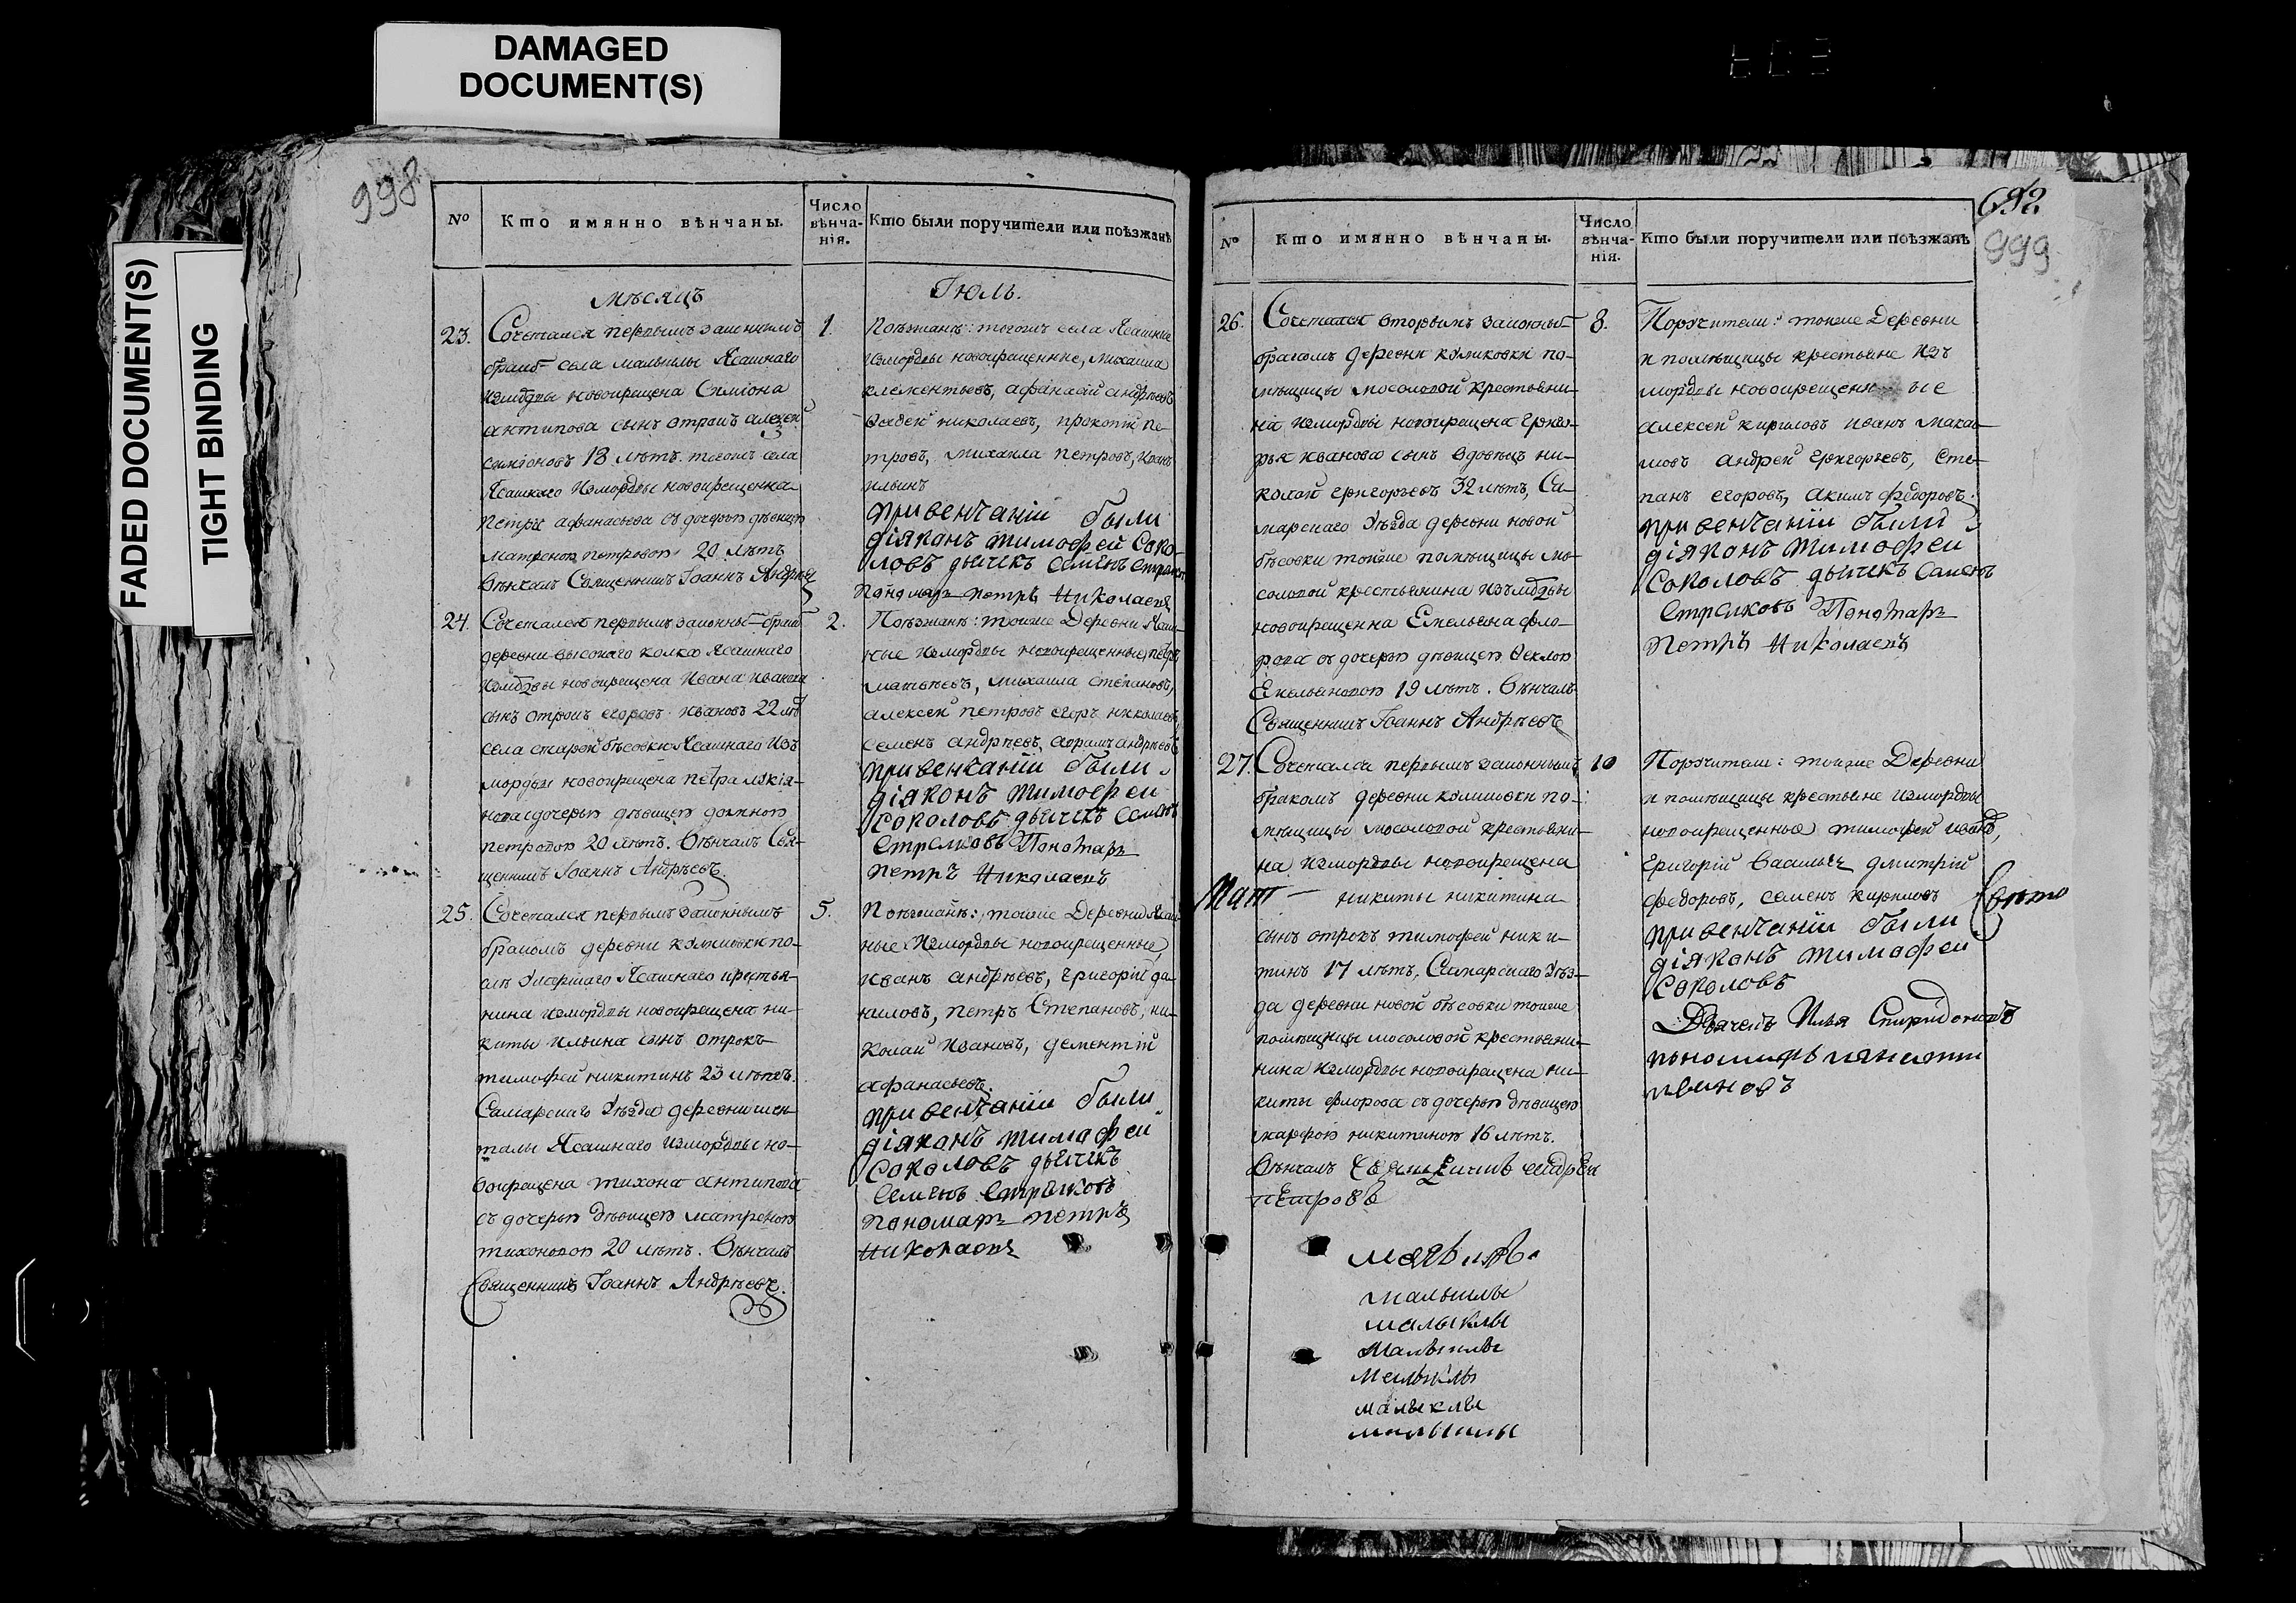 DAMAGED
DOCUMENT(S)
FADED DOCUMENT(S)
TIGHT BINDING
998
№
Кто имянно вѣнчаны.
Число вѣнча-
нія.
Кто были поручители или поѣзжанѣ
мѣсяцъ
Іюль.
23.
Сочетался первымъ законнымъ
бракомъ села малыклы Ясашнаго
измордвы новокрещена Симіона
антипова сынъ отрокъ алексей
симіоновъ 18 лѣтъ. тогожъ села
Ясашнаго измордвы новокрещена
петра афанасьева съ дочерью дѣвицею
матреною петровою 20 лѣтъ
Вѣнчалъ Священникъ Іоаннъ Андрѣевъ
1.
Поѣзжанѣ: тогожъ села Ясашные
измордвы новокрещенные, михаила
клементьевъ, афанасей андрѣевъ
Фадей николаевъ, прокопій пе-
тровъ, михаила петровъ, иванъ
ильинъ
при венчаніи были
діяконъ тимофей Соко-
ловъ дьячекъ семенъ стрелковъ
пономарь петръ николаевъ
24.
Сочетался первымъ законнымъ бракомъ
деревни высокаго колка Ясашнаго
измордвы новокрещена Ивана иванова
сынъ отрокъ егоровъ ивановъ 22 лѣтъ
села старой бѣсовки Ясашнаго изъ
мордвы новокрещена петра
дочерью дѣвицею
петровою 20 лѣтъ. Вѣнчалъ Свя-
щенникъ Іоаннъ Андрѣевъ
2.
Поѣзжанѣ: тоиже Деревни Ясаш-
ные измордвы новокрещенные, петръ
матвѣевъ, михаила степановъ,
алексей петровъ егоръ николаевъ
семенъ андрѣевъ, абрамъ андрѣевъ
при венчаніи были
діяконъ тимофеи
соколовъ дьячекъ семенъ
стрелковъ Пономарь
петръ николаевъ
25.
Сочетался первымъ законнымъ
бракомъ деревни куликовки по-
слѣ умершаго Ясашнаго крестья-
нина измордвы новокрещена ни-
киты ильина сынъ отрокъ
тимофей никитинъ 23 лѣтъ.
Самарскаго уѣзда деревни шен-
талы Ясашнаго измордвы но-
вокрещена тихона антипова
съ дочерью дѣвицею матреною
тихоновою 20 лѣтъ. Вѣнчалъ
Священникъ Іоаннъ Андрѣевъ.
5.
Поѣзжанѣ: тоиже Деревни Ясаш-
ные измордвы новокрещенные,
иванъ андрѣевъ, григорій да-
ниловъ, петръ Степановъ, ни-
колаи ивановъ, дементій
афанасьевъ.
при венчаніи были
діяконъ тимофеи
соколовъ дьячекъ
семенъ стрелковъ
пономарь петръ
николаевъ
692.
999
№
Кто имянно вѣнчаны.
Число вѣнча-
нія.
Кто были поручители или поѣзжанѣ
26.
Сочетался вторымъ законнымъ
бракомъ деревни куликовки по-
мѣщицы мосоловой крестьяни-
на измордвы новокрещена григо-
рья иванова сынъ вдовецъ ни-
колай григорьевъ 32 лѣтъ, Са-
марскаго уѣзда деревни новой
бѣсовки тойже помѣщицы мо-
соловой крестьянина изъмордвы
новокрещена Емельяна фло-
рова съ дочерью дѣвицею Феклою
Емельяновою 19 лѣтъ. Вѣнчалъ
Священникъ Іоаннъ Андрѣевъ
8.
Поручители: тоиже Деревни
и помѣщицы крестьяне изъ
мордвы новокрещенные
алексей кириловъ иванъ макси-
мовъ андрей григорьевъ, сте-
панъ егоровъ, акимъ федоровъ.
при венчаніи были
діяконъ тимофеи
соколовъ дьячекъ семенъ
стрелковъ Пономарь
петръ николаевъ
27.
Сочетался первымъ законнымъ
бракомъ деревни куликовки по-
мѣщицы мосоловой крестьяни-
на измордвы новокрещена
никиты никитина
сынъ отрокъ тимофей ники-
тинъ 17 лѣтъ, Самарскаго уѣз-
да деревни новой бѣсовки тоиже
помѣщицы мосоловой крестьяни-
нина измордвы новокрещена ни-
киты флорова съ дочерью дѣвицею
марфою никитиною 16 лѣтъ.
Вѣнчалъ Священникъ андрей
петровъ
10
Поручители: тоиже Деревни
и помѣщицы крестьяне измордвы
новокрещенные тимофей ивановъ,
григорій васильевъ дмитрій
федоровъ, семенъ кириловъ
при венчаніи были
діяконъ тимофеи
соколовъ
Дьячекъ Илья Спиридоновъ
малыклы
малыклы
малыклы
малыклы
малыклы
малыклы